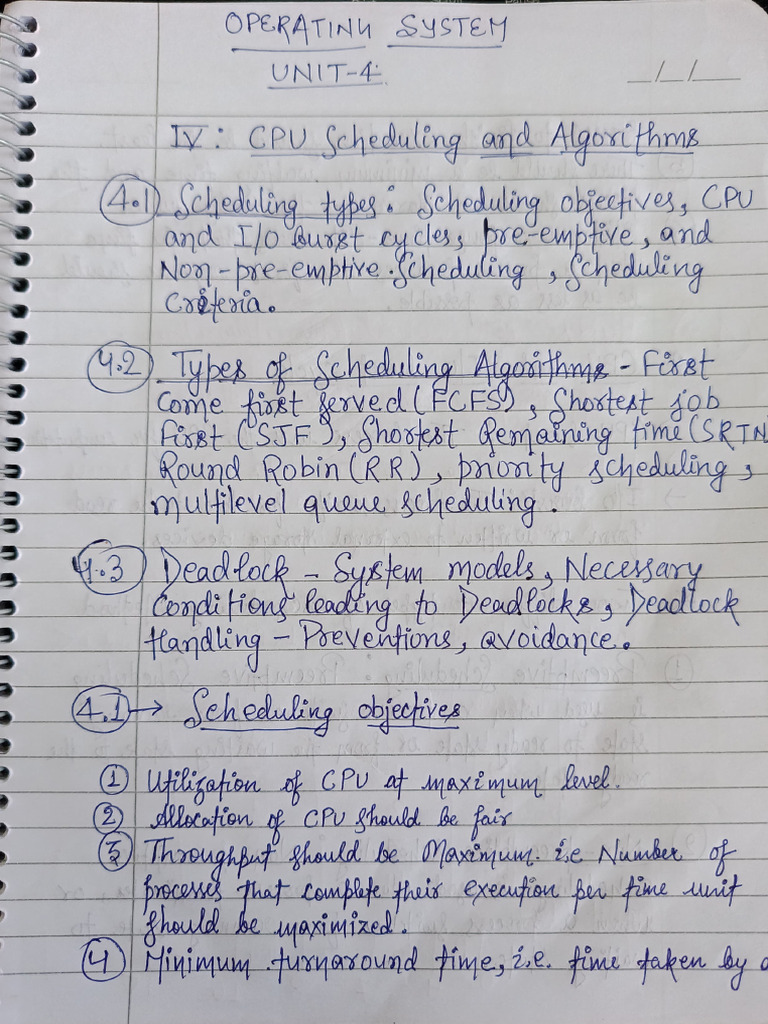 OPERATING SYSTEM
UNIT-4
_/_/_
IV: CPU Scheduling and Algorithms
4.1 Scheduling types: Scheduling objectives, CPU
and I/O burst cycles, pre-emptive, and
Non-pre-emptive Scheduling, Scheduling
Criteria.
4.2 Types of Scheduling Algorithms - First
come first served (FCFS), Shortest job
first (SJF), Shortest Remaining time (SRTN
Round Robin (RR), priority scheduling,
multilevel queue scheduling.
4.3 Deadlock - System models, Necessary
Conditions leading to Deadlocks, Deadlock
Handling - Preventions, avoidance.
4.1 → Scheduling objectives
1 Utilization of CPU at maximum level.
2 Allocation of CPU should be fair
3 Throughput should be Maximum. i.e Number of
processes that complete their execution per time unit
should be maximized.
4 Minimum turnaround time, i.e. time taken by